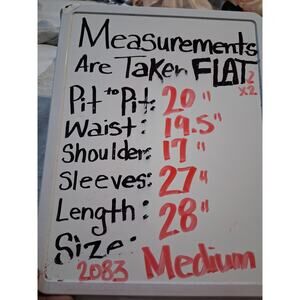 Measurements
Are Taken FLAT 2
x2
Pit to Pit: 20"
Waist: 19.5"
Shoulder: 17"
Sleeves: 27"
Length: 28"
Size: Medium
2083